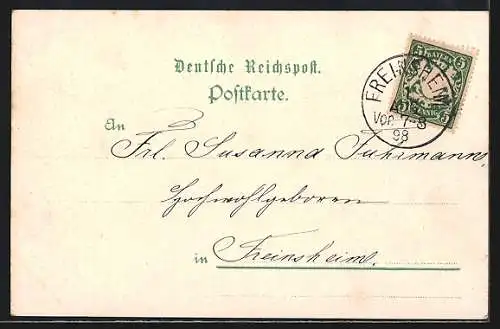 Deutsche Reichspost.
Postkarte.
5 BAYERN 5
FREINSHEIM
Vor. 7-8
98
An
Frl. Susanna Fuhrmann,
Hochwohlgeboren
in Freinsheim.